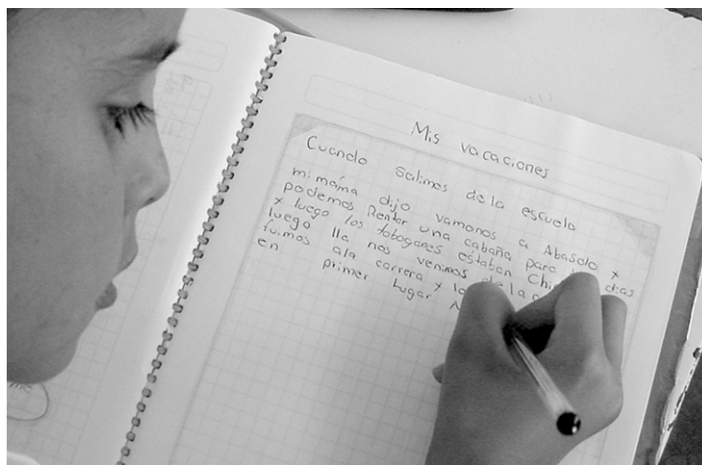 Mis vacaciones
Cuando salimos de la escuela
mi mamá dijo vamonos a Abasolo x
podemos Rentar una cabaña para dias
x luego los tobogares estaban
luego lla nos venimos de la
fuimos ala carrera x
en primer lugar